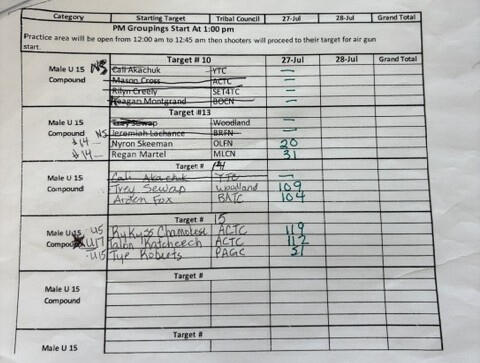 Category Starting Target Tribal Council 27-Jul 28-Jul Grand Total
PM Groupings Start At 1:00 pm
Practice area will be open from 12:00 am to 12:45 am then shooters will proceed to their target for air gun
start.
Target # 10 27-Jul 28-Jul Grand Total
Male U 15 NS Cali Akachuk YTC —
Compound Mason Cross ACTC —
Rilyn Creely SET4TC —
Keagan Montgrand BOCN —
Target #13
Male U 15 Trey Sewap Woodland —
Compound NS Jeremiah Lachance BRFN —
#14— Nyron Skeeman OLFN 20
#14— Regan Martel MLCN 31
Target # 14
Male U 15 Cali Akachuk YTC —
Compound Trey Sewap Woodland 109
Arden Fox BATC 104
Target # 15
Male U 15 U15 ACTC 119
Compound U17 Talon ACTC 112
U15 Tye Roberts PAGC 51
Target #
Male U 15
Compound
Target #
Male U 15